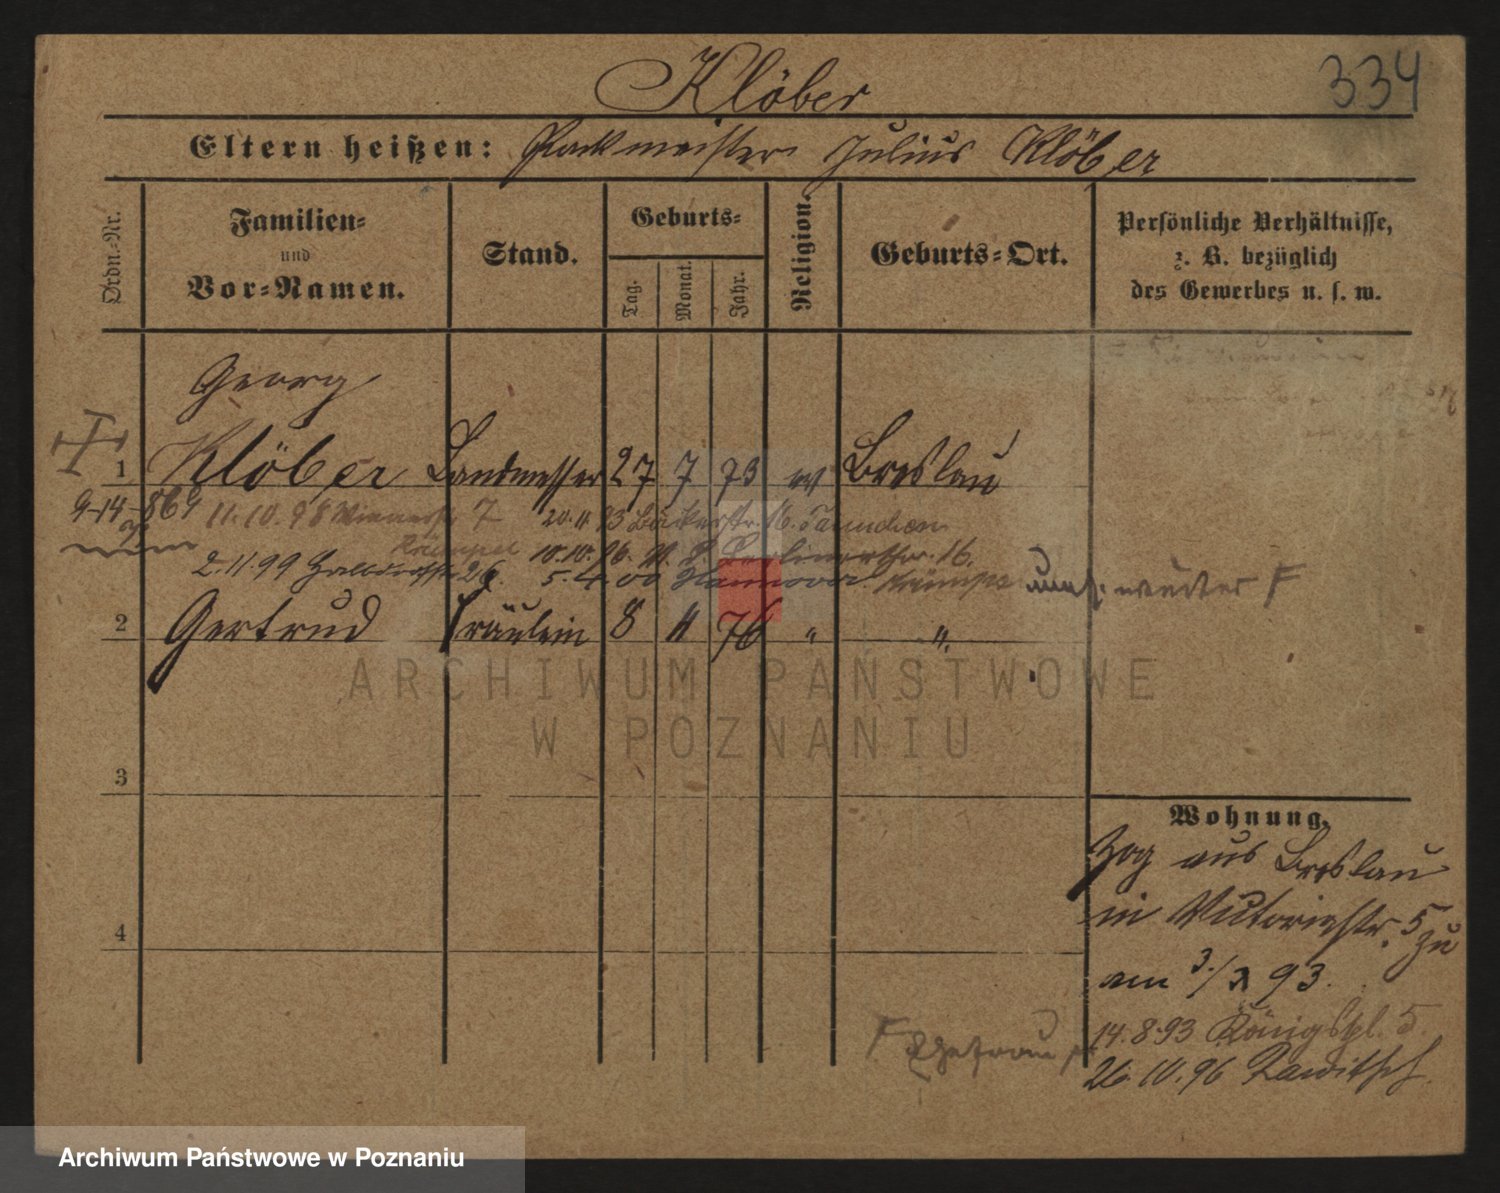 Klöber 334
Eltern heißen: Packmeister Julius Klöber
Ordn.-Nr.
Familien-
und
Vor-Namen.
Stand.
Geburts-
Tag.
Monat.
Jahr.
Religion.
Geburts-Ort.
Persönliche Verhältnisse,
z. B. bezüglich
des Gewerbes u. s. w.
Georg
1 Klöber Landmesser 27 7 73 Breslau
9-14-869 11.10.98 7 20.11.93 Bäckerstr. 16.
10.10.96. 16.
2.11.99 26. 5.4.00 Hannover
2 Gertrud Fräulein 8 " 76 " "
ARCHIWUM PAŃSTWOWE
W POZNANIU
3
4
Wohnung.
Zog aus Breslau
in Victoriastr. 5 zu
am 3./ 93.
14.8.93 Königspl. 5.
Ehefrau
26.10.96 Rawitsch
Archiwum Państwowe w Poznaniu